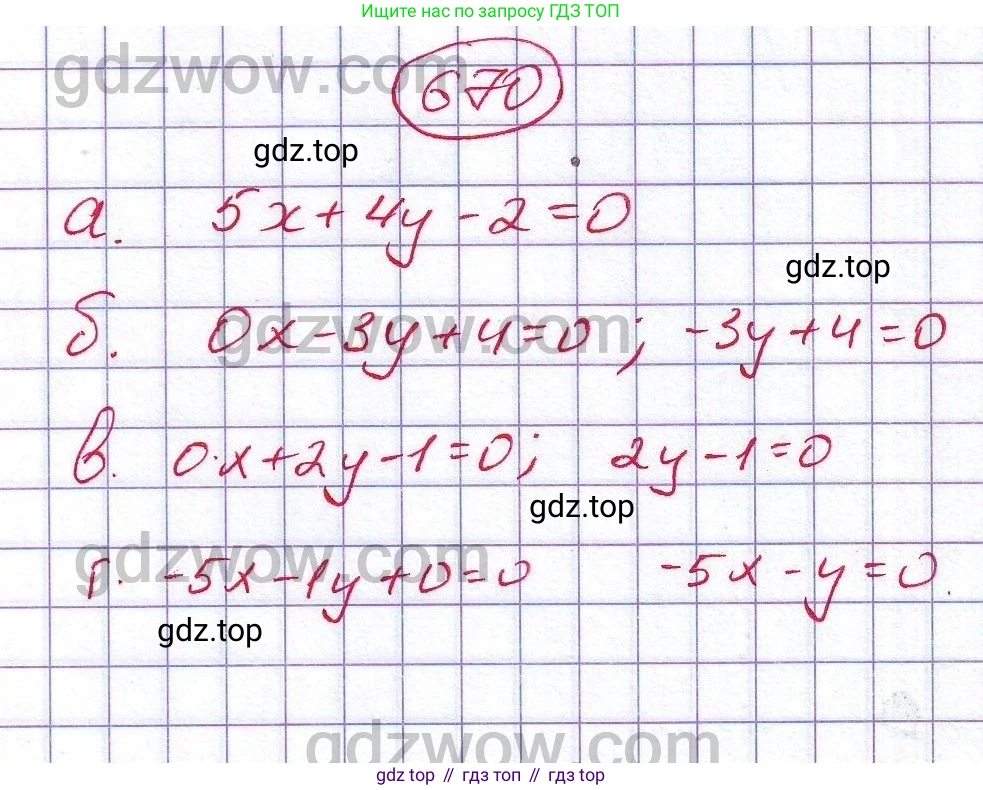 Ищите нас по запросу ГДЗ ТОП
gdzwow.com
670
gdz.top
а. 5x+4y-2=0
gdz.top
gdzwow.com
б. 0x-3y+4=0; -3y+4=0
в. 0·x+2y-1=0; 2y-1=0
gdz.top
gdzwow.com
г. -5x-1y+0=0 -5x-y=0
gdz.top
gdzwow.com
gdz top // гдз топ // гдз top